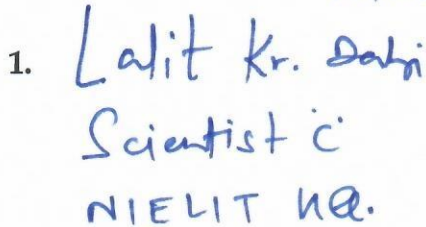 1. Lalit Kr.
Scientist 'C'
NIELIT HQ.